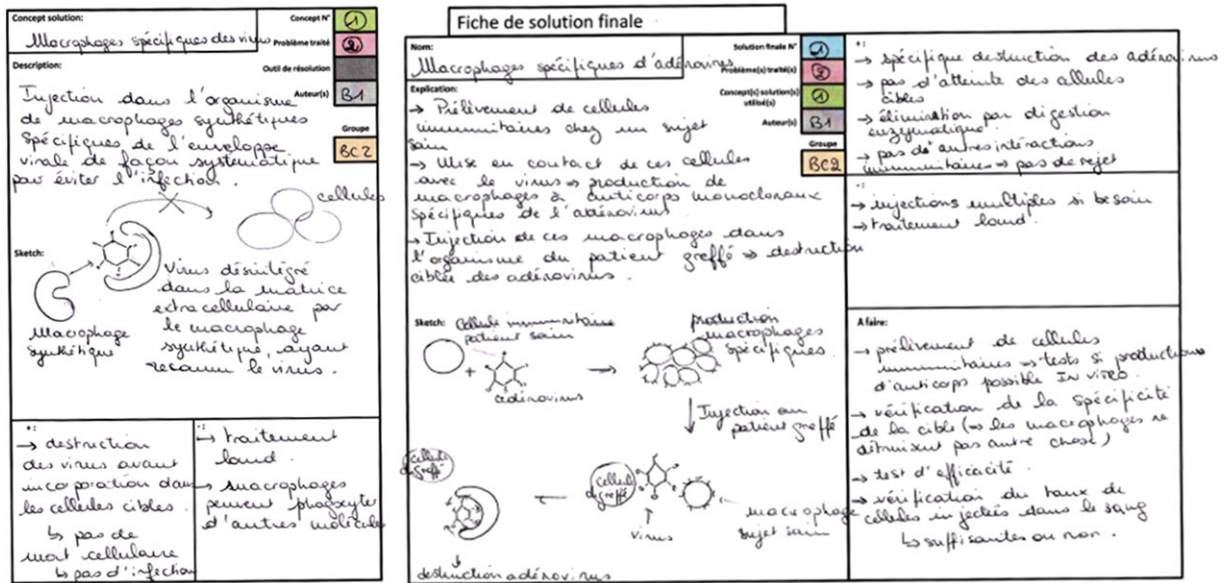 Concept solution:
Macrophages spécifiques des virus
Concept N°
1
Problème traité
2
Outil de résolution
Auteur(s)
B1
Groupe
BC2
Description:
Injection dans l'organisme
de macrophages synthétiques
spécifiques de l'enveloppe
virale de façon systématique
pour éviter l'infection.
cellules
Sketch:
Macrophage
synthétique
Virus désintégré
dans la matrice
extracellulaire par
le macrophage
synthétique, ayant
reconnu le virus.
+:
→ destruction
des virus avant
incorporation dans
les cellules cibles.
↳ pas de
mort cellulaire
↳ pas d'infection
-:
→ traitement
lourd.
→ Macrophages
peuvent phagocyter
d'autres molécules
Fiche de solution finale
Nom:
Macrophages spécifiques d'adénovirus
Solution finale N°
1
Problème(s) traité(s)
2
Concept(s) solution(s)
utilisé(s)
1
Auteur(s)
B1
Groupe
BC2
Explication:
→ Prélèvement de cellules
immunitaires chez un sujet
sain
→ Mise en contact de ces cellules
avec le virus ⇒ production de
macrophages à anticorps monoclonaux
spécifiques de l'adénovirus
→ Injection de ces macrophages dans
l'organisme du patient greffé ⇒ destruction
ciblée des adénovirus.
Sketch:
Cellule immunitaire
patient sain
+
adénovirus
production
macrophages
spécifiques.
Injection au
patient greffé
cellule
du greffé
virus
macrophage
sujet sain
cellule
du greffé
destruction adénovirus
+:
→ spécifique destruction des adénovirus
→ pas d'atteinte des cellules
cibles
→ élimination par digestion
enzymatique.
→ pas de autres intéractions
immunitaires ⇒ pas de rejet
-:
→ injections multiples si besoin
→ traitement lourd.
A faire:
→ prélèvement de cellules
immunitaires ⇒ tests si productions
d'anticorps possible IN VITRO.
→ vérification de la spécificité
de la cible (⇒ les macrophages ne
détruisent pas autre chose)
→ test d'efficacité.
→ vérification du taux de
cellules injectées dans le sang
↳ suffisantes ou non.